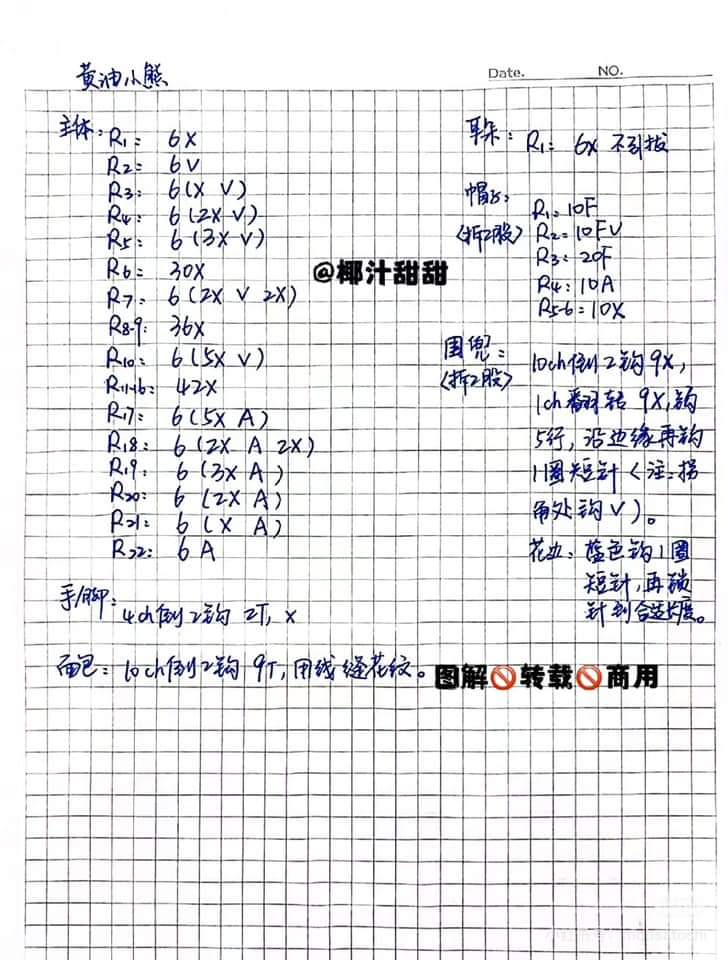 Date.
NO.
黄油小熊
主体:
R1: 6X
R2: 6V
R3: 6(X V)
R4: 6(2X V)
R5: 6(3X V)
R6: 30X
R7: 6(2X V 2X)
R8-9: 36X
R10: 6(5X V)
R11-16: 42X
R17: 6(5X A)
R18: 6(2X A 2X)
R19: 6(3X A)
R20: 6(2X A)
R21: 6(X A)
R22: 6A
手/脚: 4ch倒2钩 2T, X
面包: 10ch倒2钩 9T, 用线缝花纹。
耳朵: R1: 6X 不引拔
帽子:
<拆2股>
R1=10F
R2=10FV
R3: 20F
R4: 10A
R5-6=10X
围兜:
<拆2股>
10ch倒2钩9X,
1ch翻转 9X,钩
5行, 沿边缘再钩
1圈短针<注:拐
角处钩V)。
花边: 蓝色钩1圈
短针,再锁
针到合适长度。
@椰汁甜甜
图解🚫转载🚫商用